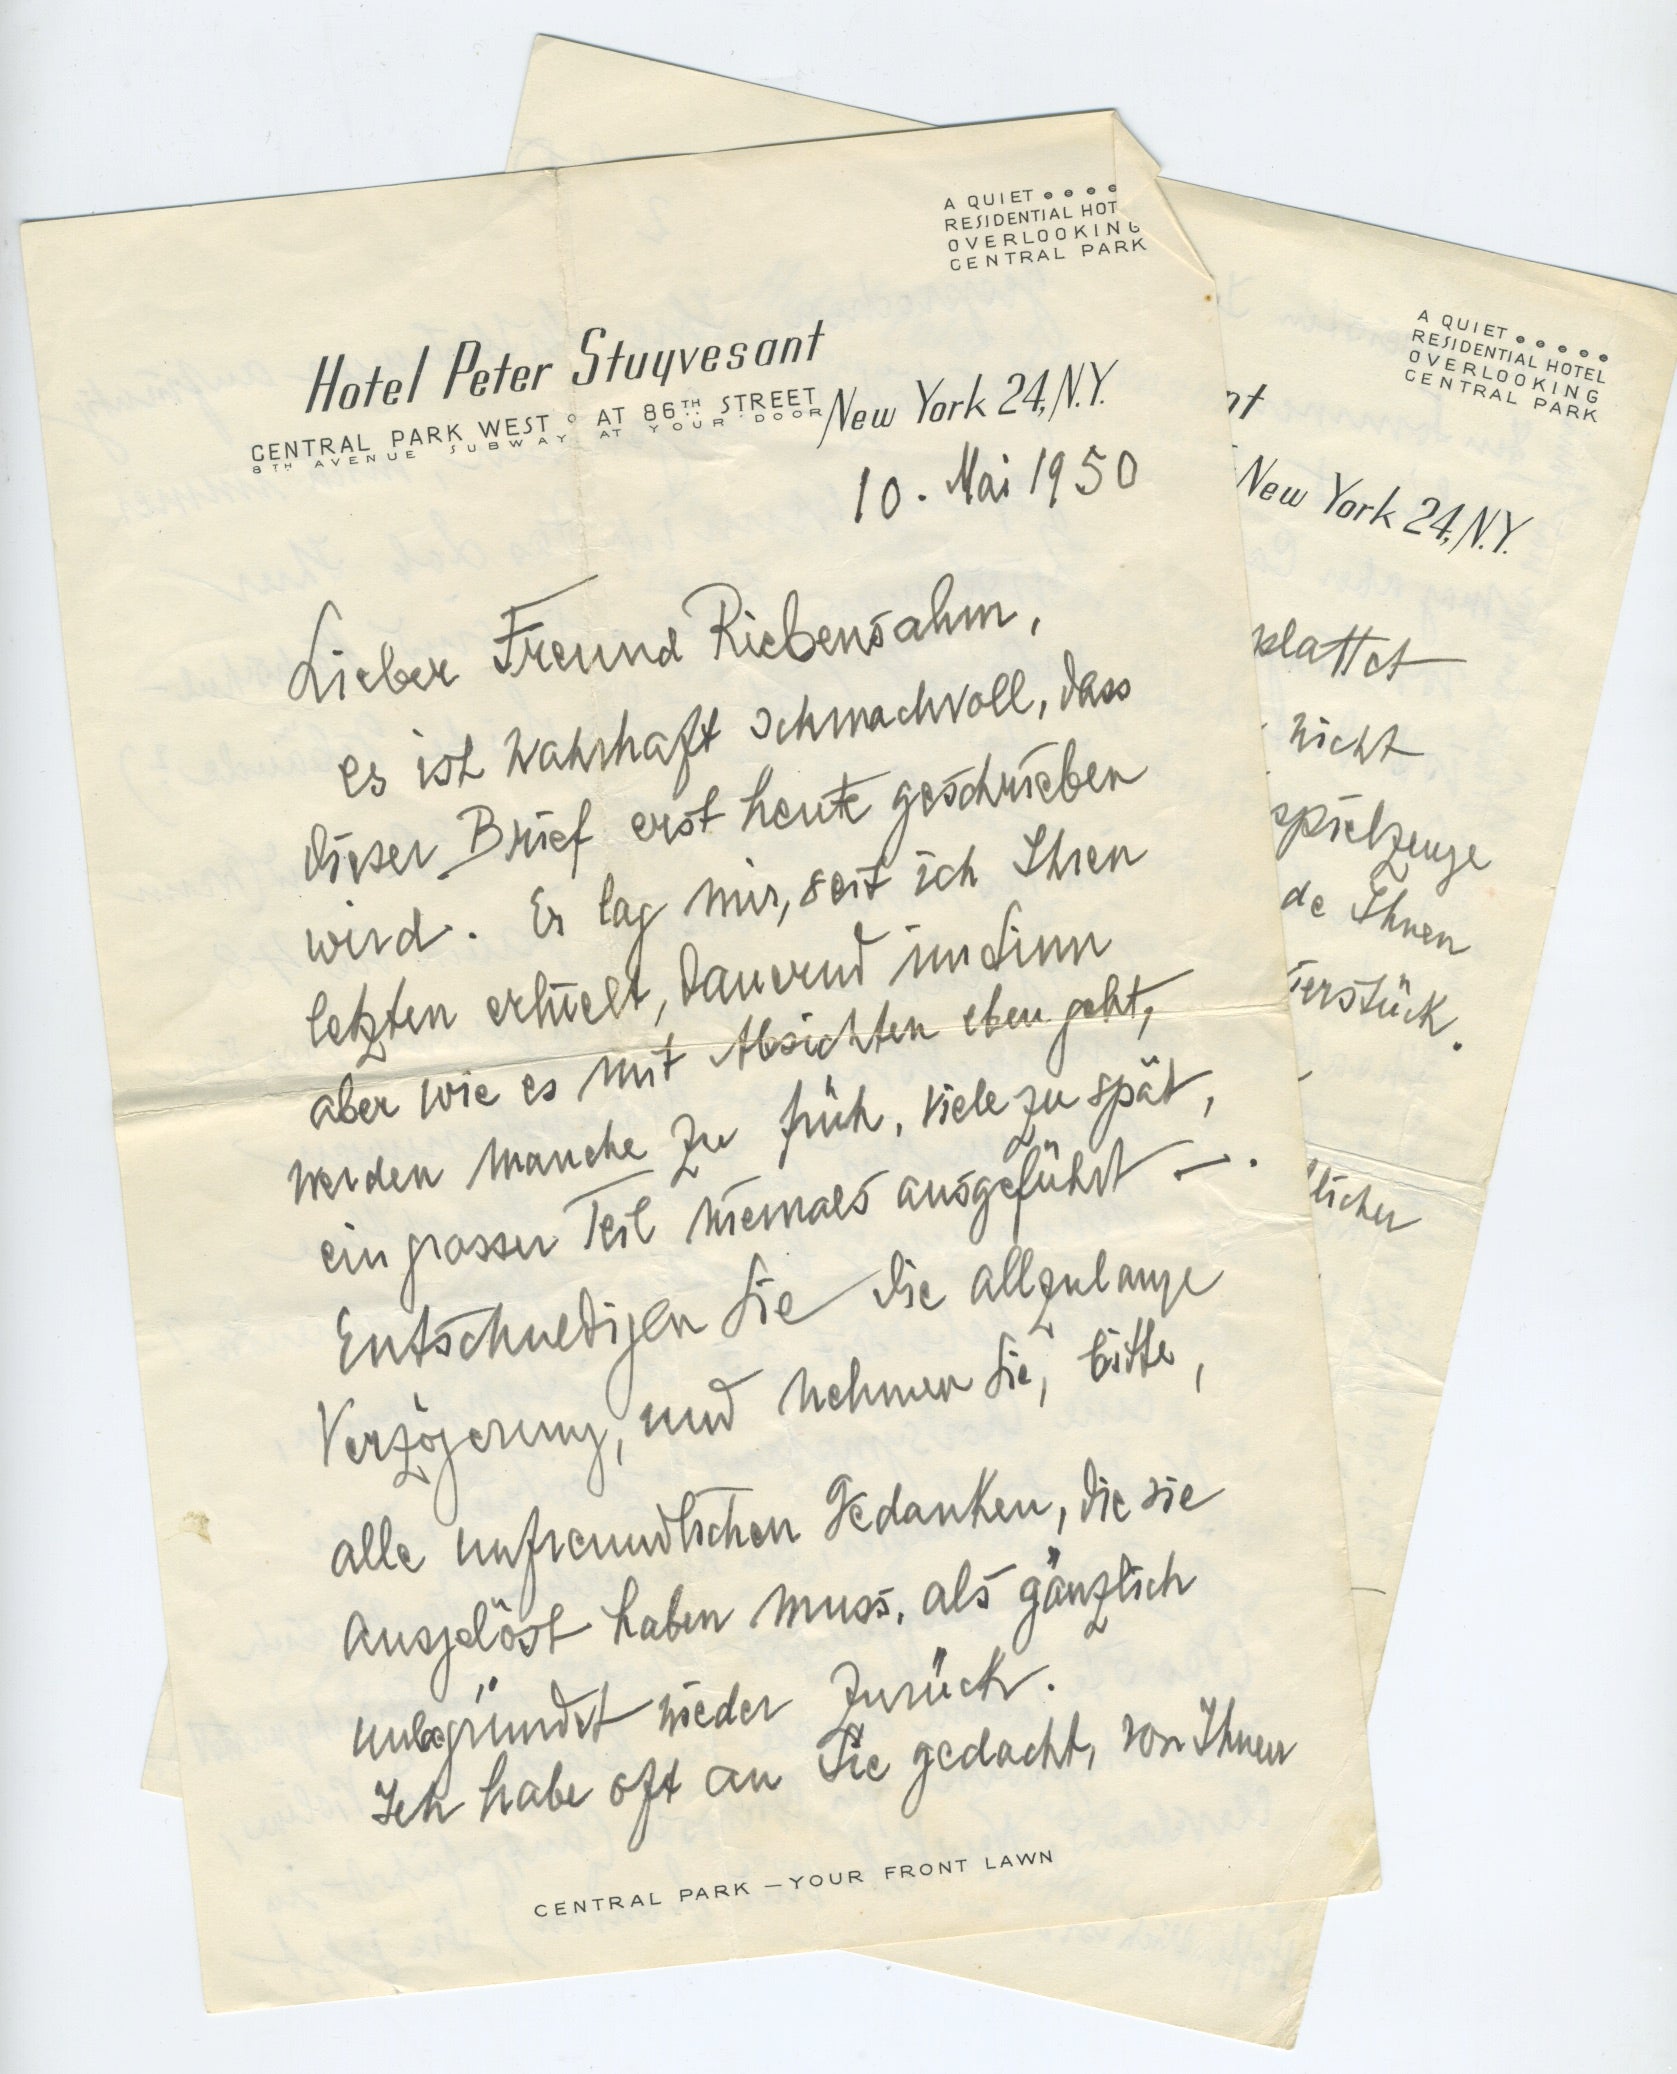 A QUIET
RESIDENTIAL HOT
OVERLOOKING
CENTRAL PARK
Hotel Peter Stuyvesant
CENTRAL PARK WEST AT 86TH STREET
8TH AVENUE SUBWAY AT YOUR DOOR
New York 24, N.Y.
10. Mai 1950
Lieber Freund Riebensahm,
es ist wahrhaft schmachvoll, dass
dieser Brief erst heute geschrieben
wird. Er lag mir, seit ich Ihren
letzten erhielt, dauernd im Sinn
aber wie es mit Absichten eben geht,
werden manche zu früh, viele zu spät,
ein grosser Teil niemals ausgeführt —.
Entschuldigen Sie die allzulange
Verzögerung, und nehmen Sie, bitte,
alle unfreundlichen Gedanken, die sie
ausgelöst haben muss, als gänzlich
unbegründet wieder zurück.
Ich habe oft an Sie gedacht, von Ihnen
CENTRAL PARK — YOUR FRONT LAWN
A QUIET
RESIDENTIAL HOTEL
OVERLOOKING
CENTRAL PARK
nt
New York 24, N.Y.
plattet
nicht
spielzeuge
de Ihnen
ierstück.
licher